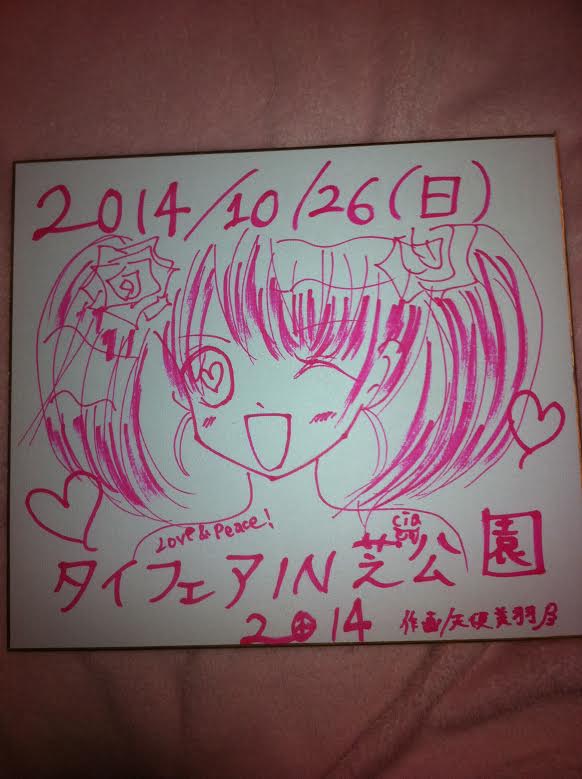 2014/10/26(日)
Love & Peace!
cia
タイフェアIN芝公園
2014
作画/天使美羽